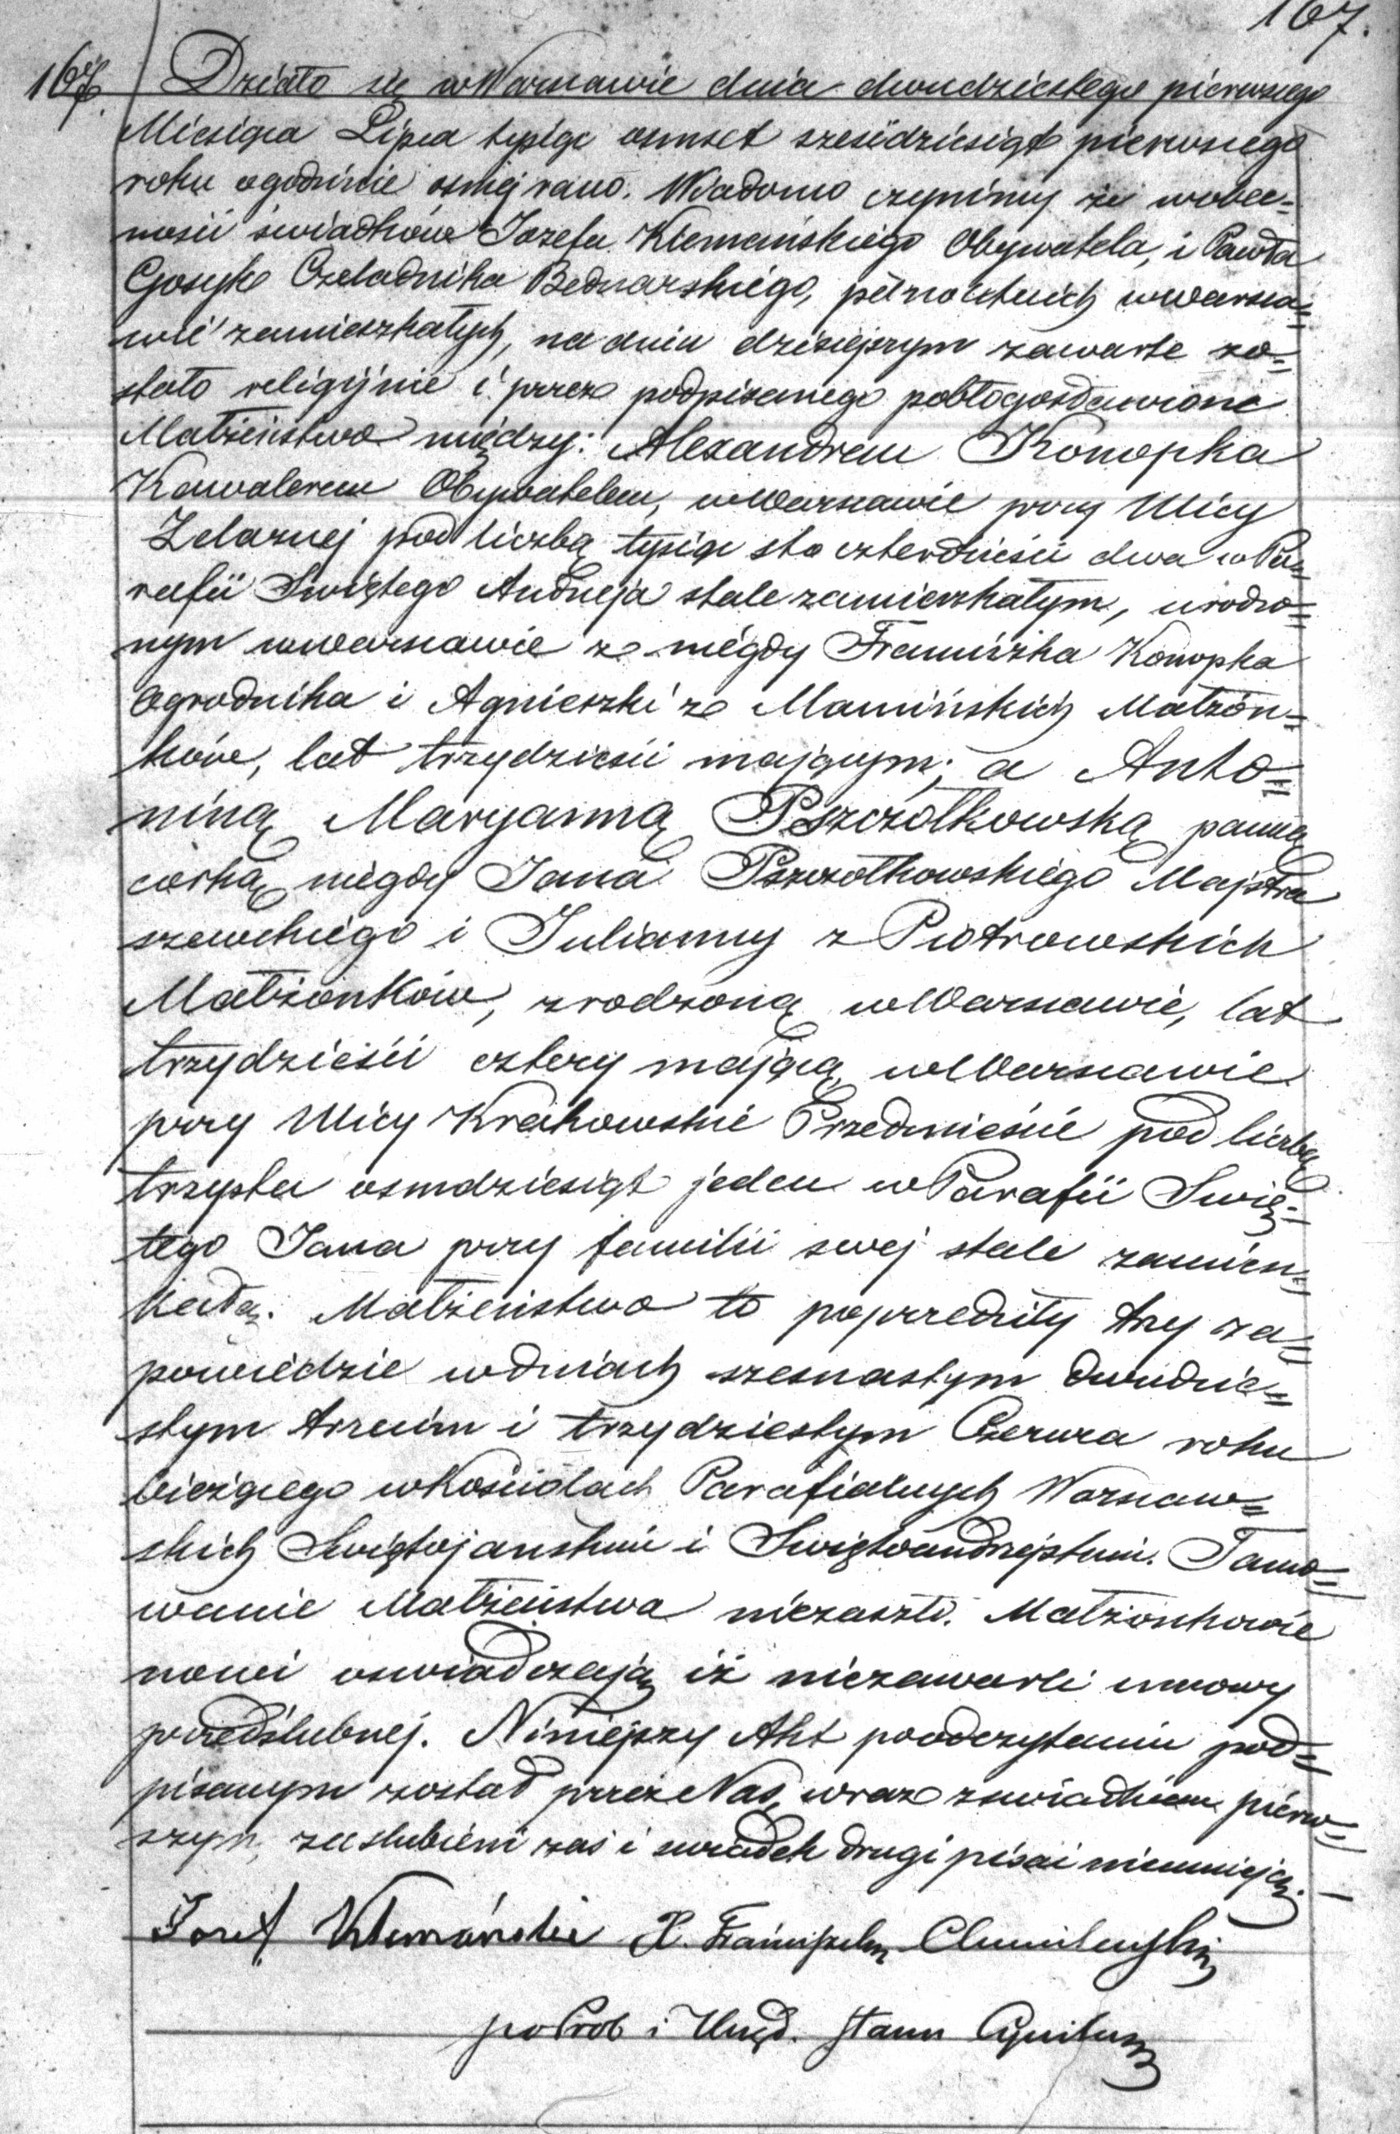 167.
167. Działo się w Warszawie dnia dwudziestego pierwszego
Miesiąca Lipca tysiąc osmset sześćdziesiąt pierwszego
roku o godzinie osmej rano. Wiadomo czynimy że w obec=
ności świadków Józefa Klemańskiego Obywatela, i Pawła
Gosyk Czeladnika Bednarskiego, pełnoletnich w Warsza=
wie zamieszkałych, na dniu dzisiejszym zawarte zo=
stało religijnie i przez podpisanego pobłogosławione
Małżeństwo między: Alexandrem Konopka
Kawalerem Obywatelem, w Warszawie przy Ulicy
Żelaznej pod liczbą tysiąc sto czterdzieści dwa w Pa=
rafii Świętego Andrzeja stale zamieszkałym, urodzo=
nym w Warszawie z niegdy Franciszka Konopka
Ogrodnika i Agnieszki z Mamińskich Małżon=
ków, lat trzydzieści mającym; a Anto=
niną Maryanną Pszczółkowską panną
córką niegdy Jana Pszczółkowskiego Majstra
szewckiego i Julianny z Piotrowskich
Małżonków, zrodzoną w Warszawie, lat
trzydzieści cztery mającą w Warszawie
przy Ulicy Krakowskie Przedmieście pod liczbą
trzysta osmdziesiąt jeden w Parafii Świę=
tego Jana przy familii swej stale zamiesz=
kałą. Małżeństwo to poprzedziły trzy za=
powiedzie w dniach szesnastym dwudzie=
stym trzecim i trzydziestym Czerwca roku
bieżącego w Kościołach Parafialnych Warszaw=
skich Świętojańskim i Świętoandrzejskim. Tamo=
wanie Małżeństwa niezaszło. Małżonkowie
nowi oświadczają iż niezawarli umowy
przedślubnej. Niniejszy Akt po odczytaniu pod=
pisanym został przez Nas, wraz z świadkiem pierw=
szym, zaślubieni zaś i świadek drugi pisać nieumieją.
Józef Klemański X. Franciszek
po Prob i Urzęd. Stanu Cywilnego